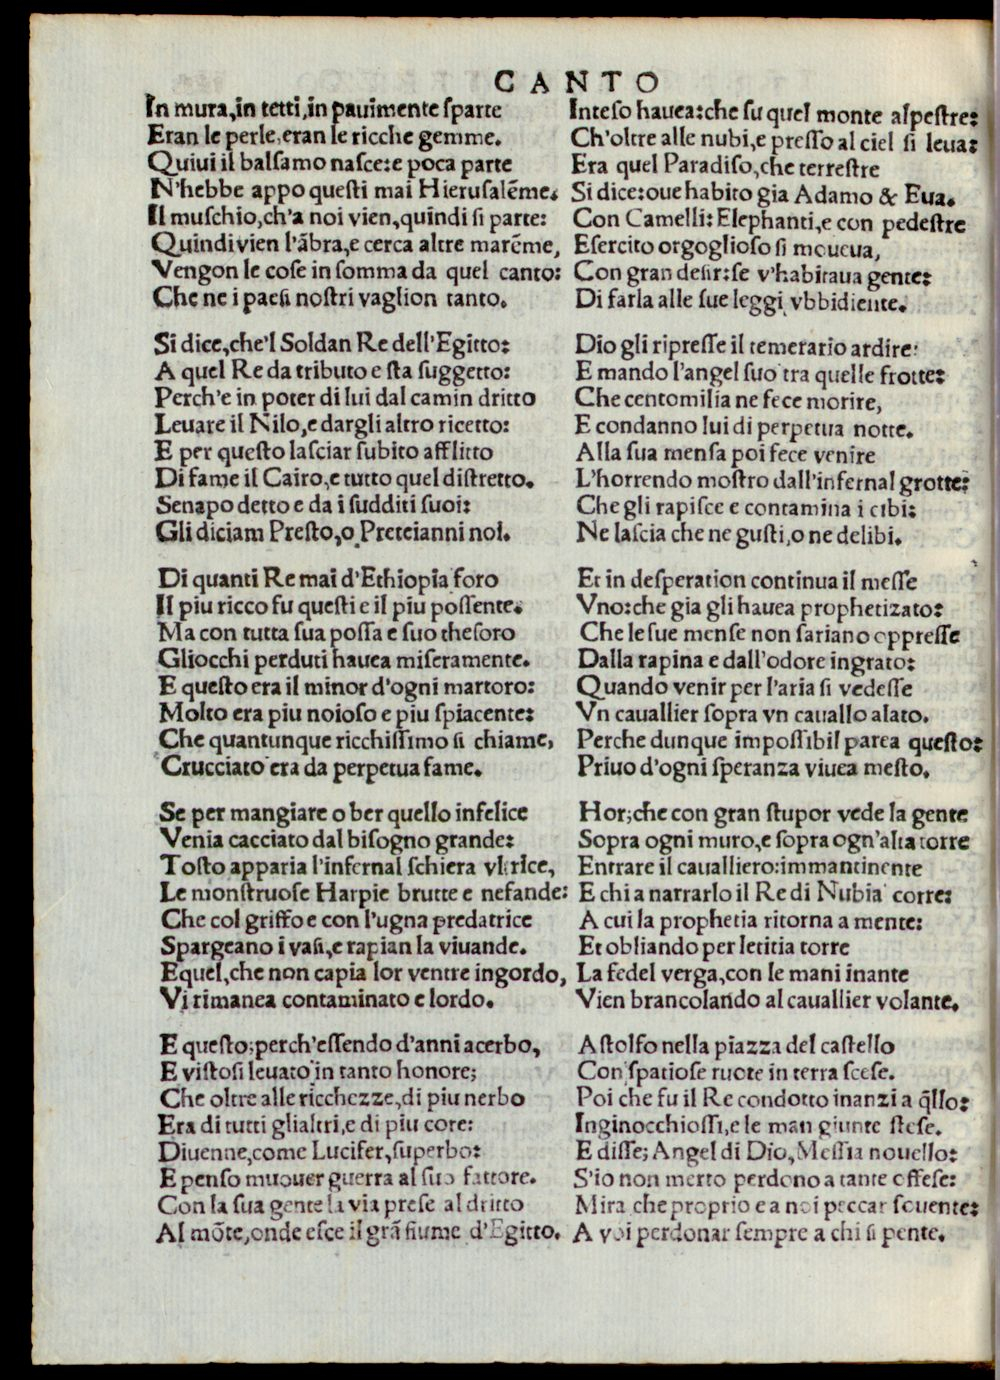 CANTO
In mura, in tetti, in pauimente sparte
Eran le perle, eran le ricche gemme.
Quiui il balsamo nasce: e poca parte
N'hebbe appo questi mai Hierusalẽme.
Il muschio, ch'a noi vien, quindi si parte:
Quindi vien l'ãbra, e cerca altre marẽme,
Vengon le cose in somma da quel canto:
Che ne i paesi nostri vaglion tanto.

Si dice, che'l Soldan Re dell'Egitto:
A quel Re da tributo e sta suggetto:
Perch'e in poter di lui dal camin dritto
Leuare il Nilo, e dargli altro ricetto:
E per questo lasciar subito afflitto
Di fame il Cairo, e tutto quel distretto.
Senapo detto e da i sudditi suoi:
Gli diciam Presto, o Preteianni noi.

Di quanti Re mai d'Ethiopia foro
Il piu ricco fu questi e il piu possente.
Ma con tutta sua possa e suo thesoro
Gliocchi perduti hauea miseramente.
E questo era il minor d'ogni martoro:
Molto era piu noioso e piu spiacente:
Che quantunque ricchissimo si chiame,
Crucciato era da perpetua fame.

Se per mangiare o ber quello infelice
Venia cacciato dal bisogno grande:
Tosto apparia l'infernal schiera vltrice,
Le monstruose Harpie brutte e nefande:
Che col griffo e con l'ugna predatrice
Spargeano i vasi, e rapian la viuande.
E quel, che non capia lor ventre ingordo,
Vi rimanea contaminato e lordo.

E questo; perch'essendo d'anni acerbo,
E vistosi leuato in tanto honore;
Che oltre alle ricchezze, di piu nerbo
Era di tutti glialtri, e di piu core:
Diuenne, come Lucifer, superbo:
E penso muouer guerra al suo fattore.
Con la sua gente la via prese al dritto
Al mõte, onde esce il grã fiume d'Egitto.

Inteso hauea: che su quel monte alpestre:
Ch'oltre alle nubi, e presso al ciel si leua:
Era quel Paradiso, che terrestre
Si dice: oue habito gia Adamo & Eua.
Con Camelli: Elephanti, e con pedestre
Esercito orgoglioso si moueua,
Con gran desir: se v'habitaua gente:
Di farla alle sue leggi vbbidiente.

Dio gli ripresse il temerario ardire:
E mando l'angel suo tra quelle frotte:
Che centomilia ne fece morire,
E condanno lui di perpetua notte.
Alla sua mensa poi fece venire
L'horrendo mostro dall'infernal grotte:
Che gli rapisce e contamina i cibi:
Ne lascia che ne gusti, o ne delibi.

Et in desperation continua il messe
Vno: che gia gli hauea prophetizato:
Che le sue mense non sariano oppresse
Dalla rapina e dall'odore ingrato:
Quando venir per l'aria si vedesse
Vn cauallier sopra vn cauallo alato.
Perche dunque impossibil parea questo:
Priuo d'ogni speranza viuea mesto.

Hor; che con gran stupor vede la gente
Sopra ogni muro, e sopra ogn'alta torre
Entrare il caualliero: immantinente
E chi a narrarlo il Re di Nubia corre:
A cui la prophetia ritorna a mente:
Et obliando per letitia torre
La fedel verga, con le mani inante
Vien brancolando al cauallier volante.

Astolfo nella piazza del castello
Con spatiose ruote in terra scese.
Poi che fu il Re condotto inanzi a q̃llo:
Inginocchiossi, e le man giunte stese.
E disse; Angel di Dio, Messia nouello:
S'io non merto perdono a tante offese:
Mira che proprio e a noi peccar souente:
A voi perdonar sempre a chi si pente.